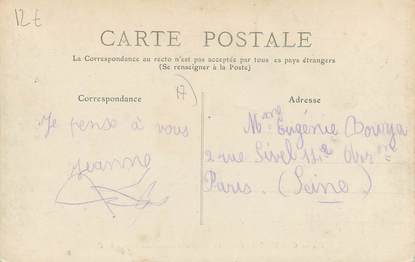 12 t
CARTE POSTALE
La Correspondance au recto n'est pas acceptée par tous ces pays étrangers
(Se renseigner à la Poste)
Correspondance
17
Adresse
Je pense à vous
Jeanne
Mme Eugénie
2 rue
Paris. (Seine)